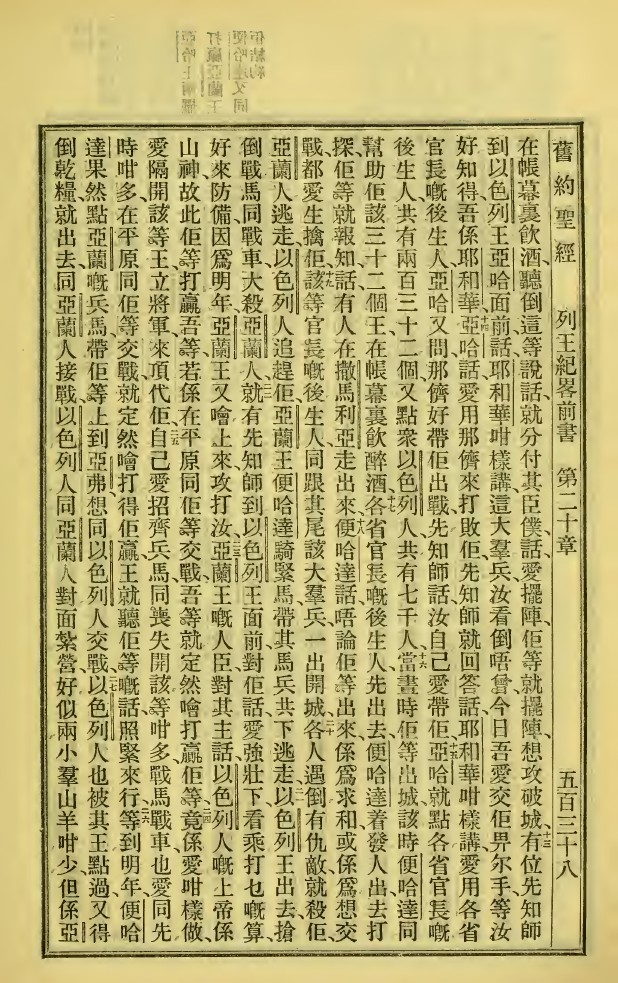 舊約聖經 列王紀畧前書 第二十章 五百三十八
在帳幕裏飲酒聽倒這等說話就分付其臣僕話愛擺陣佢等就擺陣想攻破城十三有位先知師
到以色列王亞哈面前話耶和華咁樣講這大羣兵汝看倒唔曾今日吾愛交佢畀尔手等汝
好知得吾係耶和華十四亞哈話愛用那儕來打敗佢先知師就回答話耶和華咁樣講愛用各省
官長嘅後生人亞哈又問那儕好帶佢出戰先知師話汝自己愛帶佢十五亞哈就點各省官長嘅
後生人共有兩百三十二個又點衆以色列人共有七千人十六當晝時佢等出城該時便哈達同
幫助佢該三十二個王在帳幕裏飲醉酒十七各省官長嘅後生人先出去便哈達着發人出去打
探佢等就報知話有人在撒馬利亞走出來十八便哈達話唔論佢等出來係爲求和或係爲想交
戰都愛生擒佢十九該等官長嘅後生人同跟其尾該大羣兵一出開城二十各人遇倒有仇敵就殺佢
亞蘭人逃走以色列人追趕佢亞蘭王便哈達騎緊馬帶其馬兵共下逃走二一以色列王出去搶
倒戰馬同戰車大殺亞蘭人二二就有先知師到以色列王面前對佢話愛強壯下看乘打乜嘅算
好來防備因爲明年亞蘭王又噲上來攻打汝二三亞蘭王嘅人臣對其主話以色列人嘅上帝係
山神故此佢等打贏吾等若係在平原同佢等交戰吾等就定然噲打贏佢等二四竟係愛咁樣做
愛隔開該等王立將軍來頂代佢二五自己愛招齊兵馬同喪失開該等咁多戰馬戰車也愛同先
時咁多在平原同佢等交戰就定然噲打得佢贏王就聽佢等嘅話照緊來行二六等到明年便哈
達果然點亞蘭嘅兵馬帶佢等上到亞弗想同以色列人交戰二七以色列人也被其王點過又得
倒乾糧就出去同亞蘭人接戰以色列人同亞蘭人對面紮營好似兩小羣山羊咁少但係亞